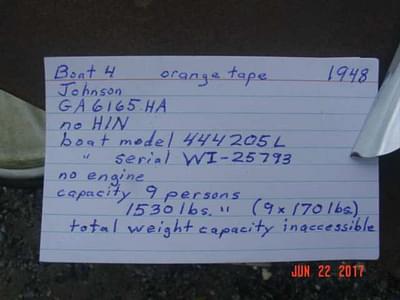 Boat 4 orange tape 1948
Johnson
GA 6165 HA
no HIN
boat model 444205L
" serial WI-25793
no engine
capacity 9 persons
1530 lbs. " (9x170 lbs.)
total weight capacity inaccessible
JUN 22 2017